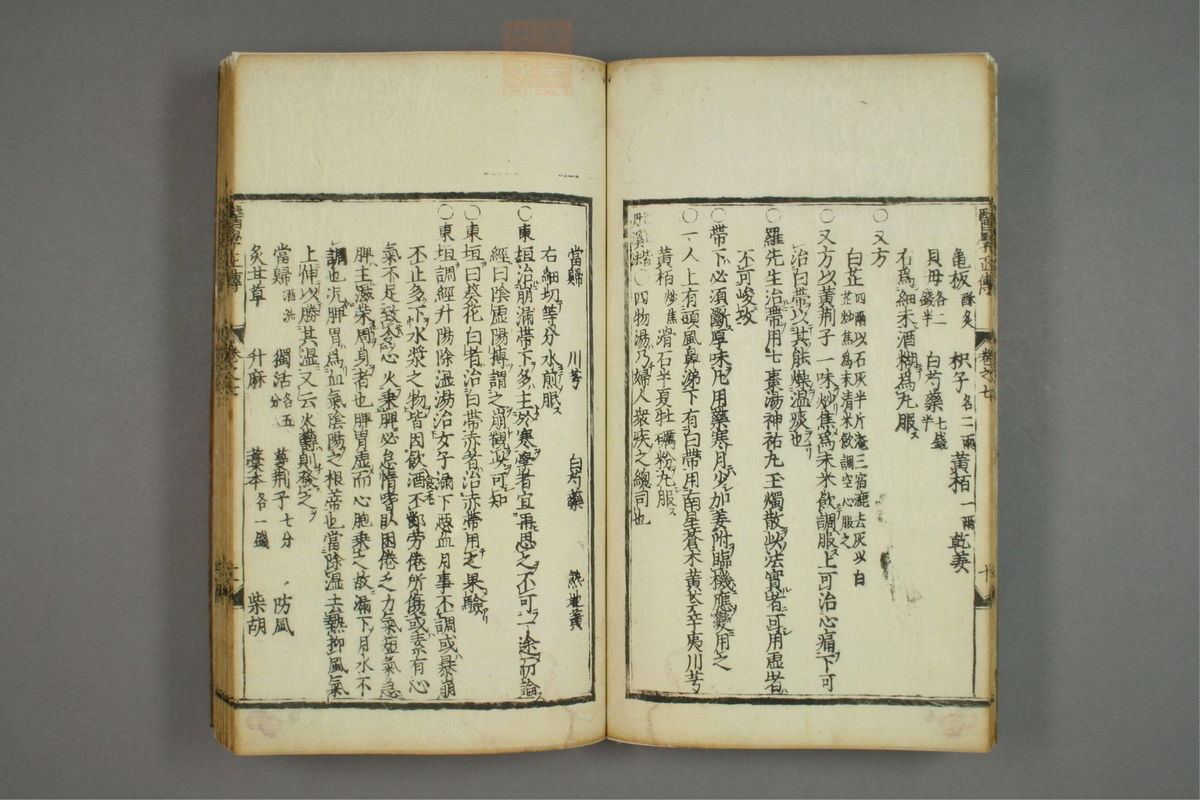 亀板酥炙 枳子各二兩 黃栢一兩 乾姜
貝母各二錢半 白芍藥七錢半
右爲細末酒糊爲丸服ス
○又方
白芷四兩以石灰半斤淹三宿麁去灰以白芷炒焦爲末清米飲調空心服之
○又方以黃荊子一味炒焦爲末米飲調服上可治心痛下可
治白帶以其能燥温痰也
○羅先生治帶用七棗湯神祐丸玉燭散此法實者可用虛者
不可峻攻
○帶下必須斷厚味凡用藥寒月少加姜附臨機應變用之
○一人上有頭風鼻涕下有白帶用南星蒼朮黃芩辛夷川芎
黃栢炒焦滑石半夏牡礪粉丸服ス
○四物湯乃婦人衆疾之總司也
當歸 川芎 白芍藥 熟地黃
右細切等分水煎服ス
○東垣治崩漏帶下多主於寒學者宜再思之不可一途而論ス
經曰陰虛陽搏謂之崩觀此可知
○東垣曰葵花白者治白帶赤者治赤帶用之果驗
○東垣調經升陽除湿湯治女子漏下惡血月事不調或暴崩
不止多下水漿之物皆因飲酒不節勞倦所傷或素有心
氣不足致令心火乗脾必怠惰嗜臥困倦乏力氣短氣急
脾主滋荣周身者也脾胃虛而心胞乗之故漏下月水不
調也况脾胃爲血氣陰陽之根蒂也當除湿去熱抑風氣
上伸以勝其湿又云火鬱則發之
當歸酒洗 獨活各五分 蔓荊子七分 防風
炙甘草 升麻 藁本各一錢 柴胡
醫學正傳
卷之七